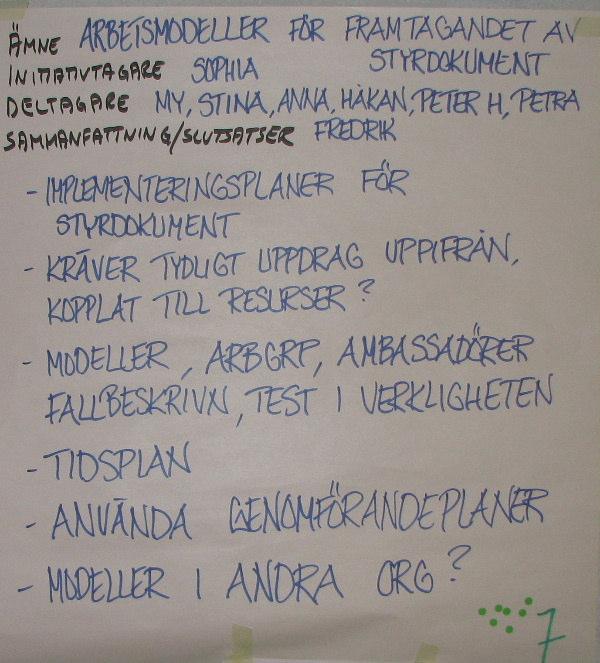 ÄMNE ARBETSMODELLER FÖR FRAMTAGANDET AV
STYRDOKUMENT
INITIATIVTAGARE SOPHIA
DELTAGARE MY, STINA, ANNA, HÅKAN, PETER H, PETRA
SAMMANFATTNING/SLUTSATSER FREDRIK
- IMPLEMENTERINGSPLANER FÖR
STYRDOKUMENT
- KRÄVER TYDLIGT UPPDRAG UPPIFRÅN,
KOPPLAT TILL RESURSER?
- MODELLER, ARBGRP, AMBASSADÖRER
FALLBESKRIVN, TEST I VERKLIGHETEN
- TIDSPLAN
- ANVÄNDA GENOMFÖRANDEPLANER
- MODELLER I ANDRA ORG?
7